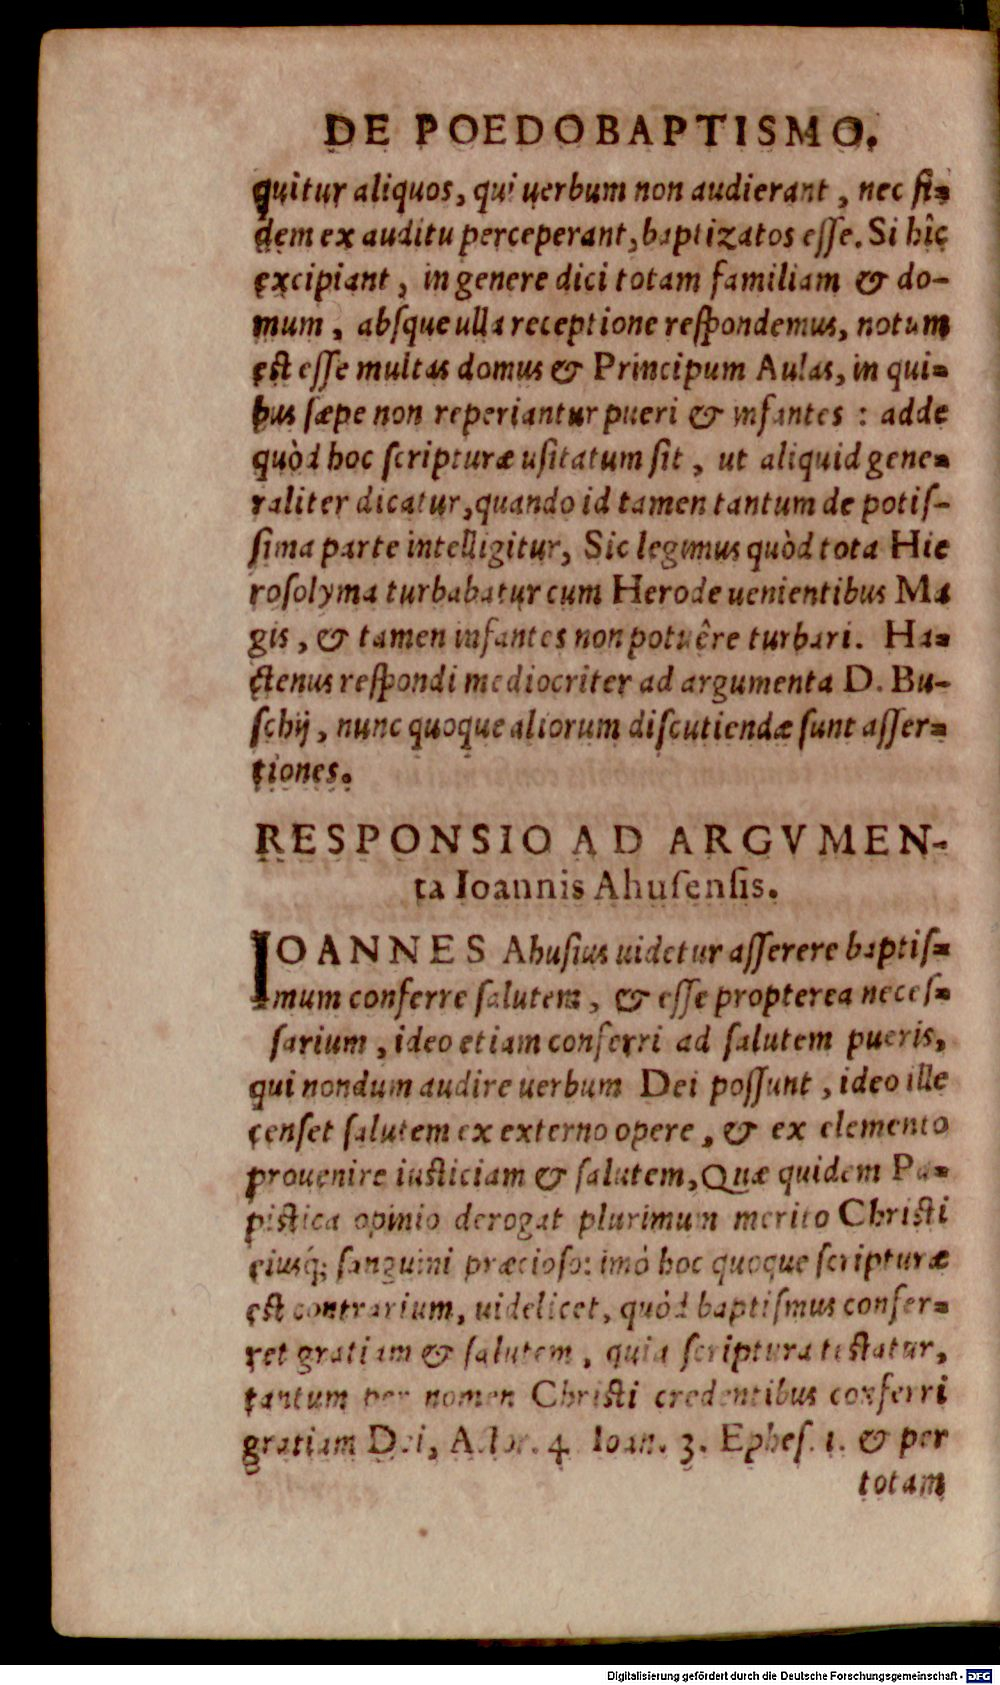 DE POEDOBAPTISMO.
quitur aliquos, qui uerbum non audierant, nec fi-
dem ex auditu perceperant, baptizatos esse. Si hîc
excipiant, in genere dici totam familiam & do-
mum, absque ulla receptione respondemus, notum
est esse multas domus & Principum Aulas, in qui-
bus sæpe non reperiantur pueri & infantes : adde
quòd hoc scripturæ usitatum sit, ut aliquid gene-
raliter dicatur, quando id tamen tantum de potis-
sima parte intelligitur, Sic legimus quòd tota Hie
rosolyma turbabatur cum Herode uenientibus Ma
gis, & tamen infantes non potuêre turbari. Ha-
ctenus respondi mediocriter ad argumenta D. Bu-
schij, nunc quoque aliorum discutiendæ sunt asser-
tiones.
RESPONSIO AD ARGVMEN-
ta Ioannis Ahusensis.
IOANNES Ahusius uidetur asserere baptis-
mum conferre salutem, & esse propterea neces-
sarium, ideo etiam conferri ad salutem pueris,
qui nondum audire uerbum Dei possunt, ideo ille
censet salutem ex externo opere, & ex elemento
prouenire iusticiam & salutem, Quæ quidem Pa-
pistica opinio derogat plurimum merito Christi
eiusq́; sanguini præcioso: imò hoc quoque scripturæ
est contrarium, uidelicet, quòd baptismus confer-
ret gratiam & salutem, quia scriptura testatur,
tantum per nomen Christi credentibus conferri
gratiam Dei, Actor. 4. Ioan. 3. Ephes. 1. & per
totam
Digitalisierung gefördert durch die Deutsche Forschungsgemeinschaft - DFG